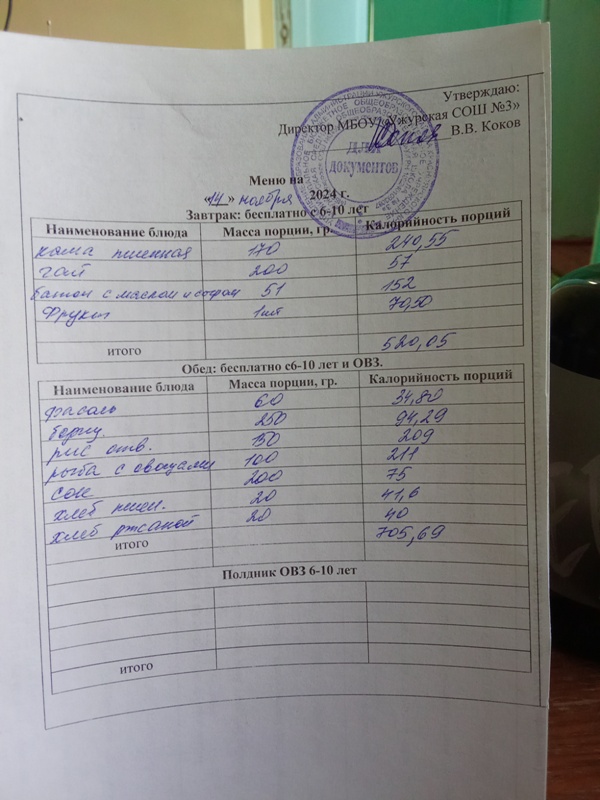 Утверждаю:
Директор МБОУ «Ужурская СОШ №3»
В.В. Коков
ДЛЯ
документов
Меню на
«14» ноября 2024 г.
Завтрак: бесплатно с 6-10 лет
Наименование блюда Масса порции, гр. Калорийность порций
каша пшенная 170 240,55
чай 200 57
батон с маслом и сыром 51 152
Фрукт 1шт 70,50
итого 520,05
Обед: бесплатно с6-10 лет и ОВЗ.
Наименование блюда Масса порции, гр. Калорийность порций
фасоль 60 34,80
борщ. 250 94,29
рис отв. 150 209
рыба с овощами 100 211
сок 200 75
хлеб пшен. 20 41,6
хлеб ржаной 20 40
итого 705,69
Полдник ОВЗ 6-10 лет
итого